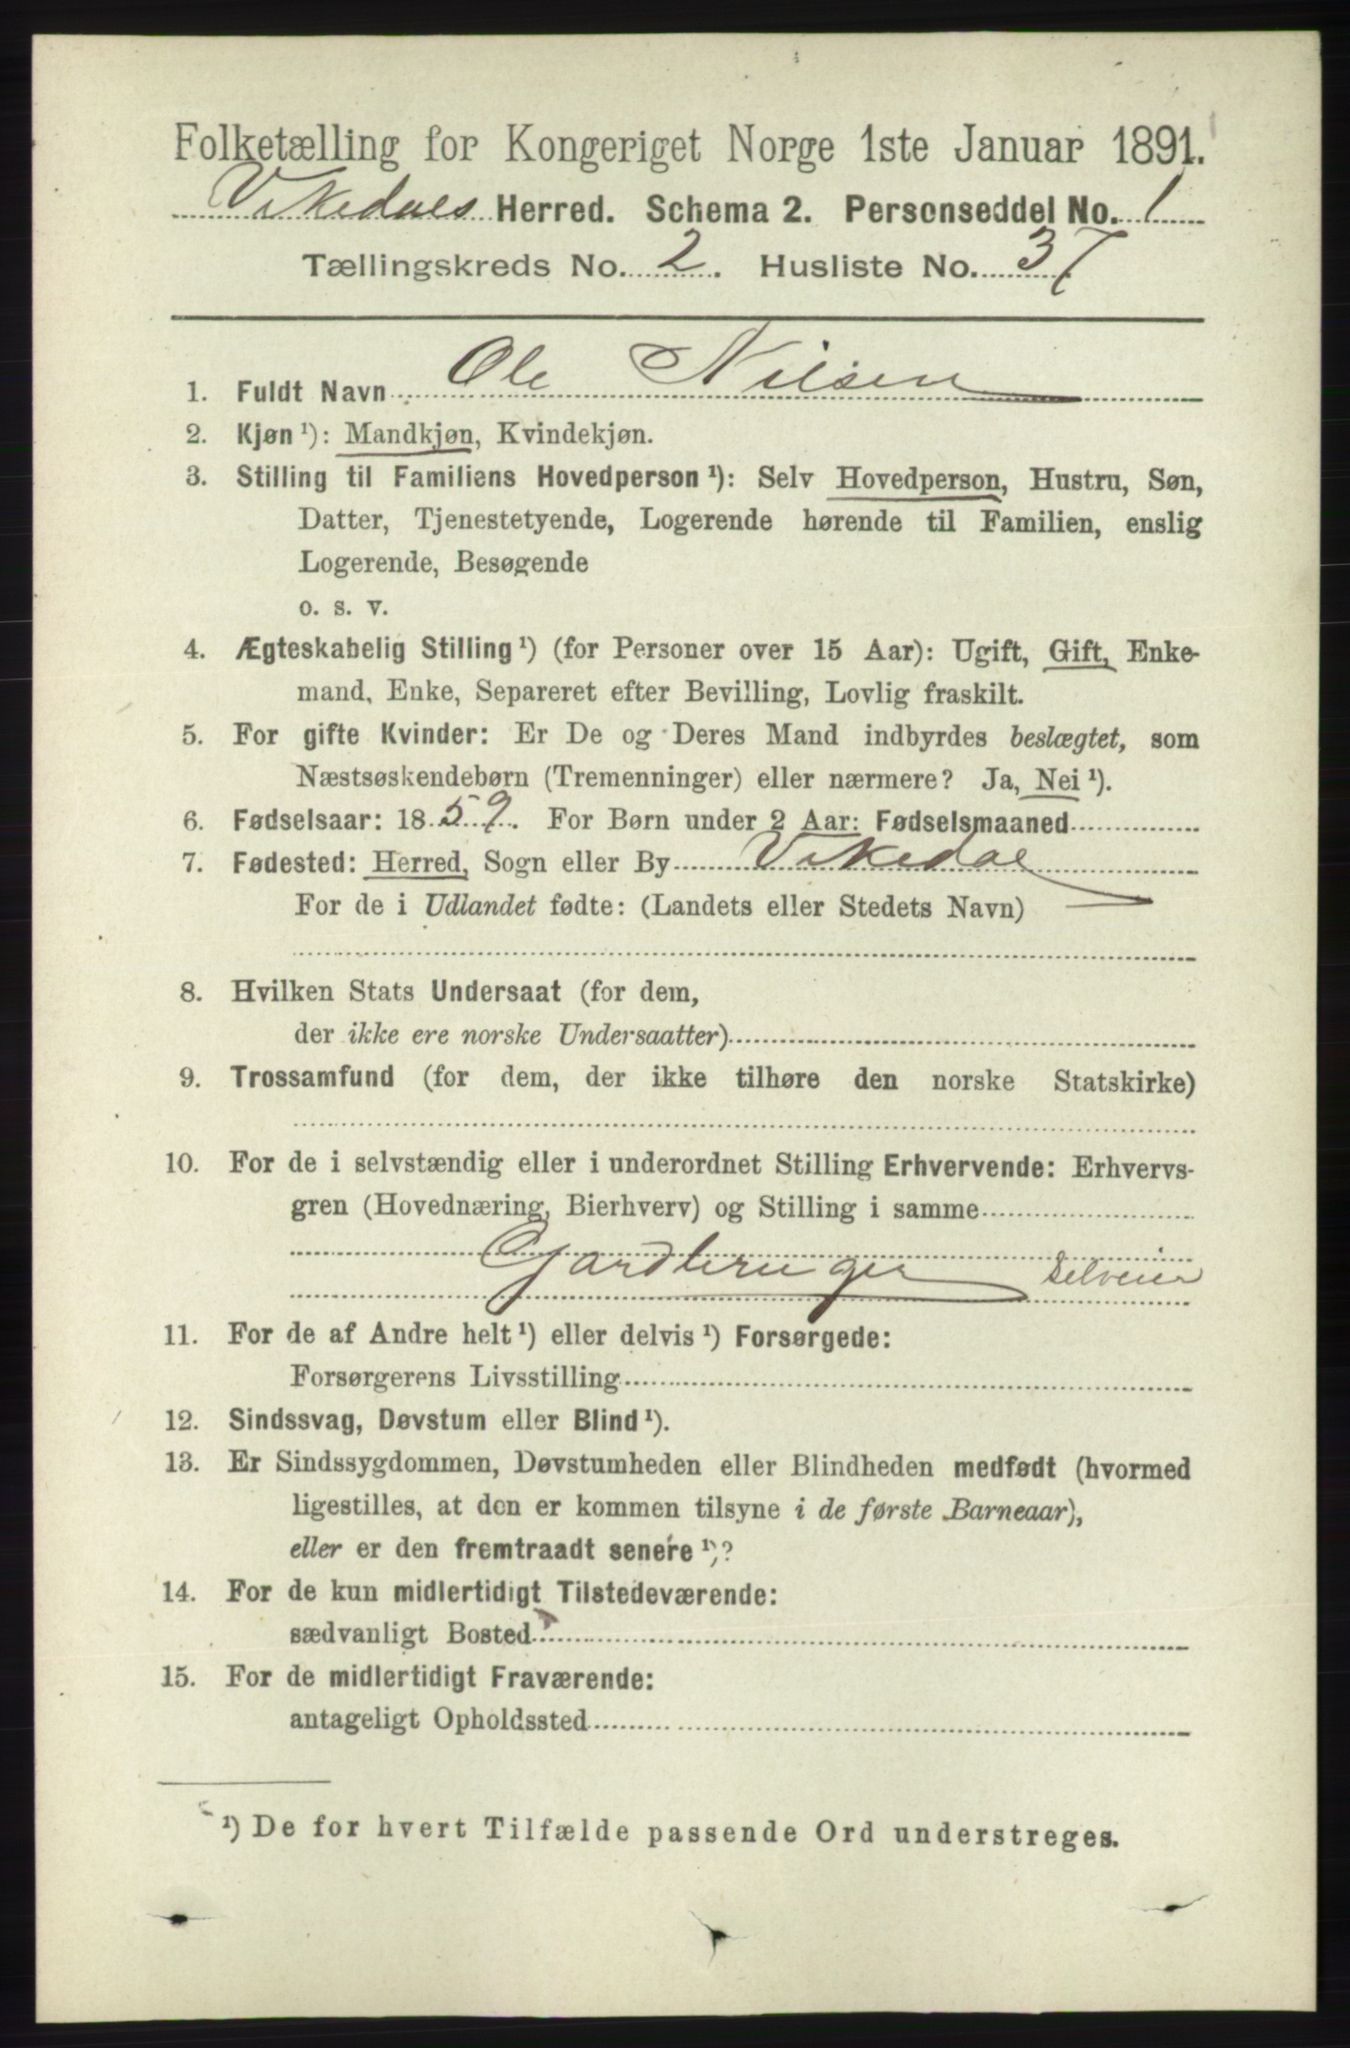 Folketælling for Kongeriget Norge 1ste Januar 1891.
Vikedals Herred. Schema 2. Personseddel No. 1
Tællingskreds No. 2. Husliste No. 37
1. Fuldt Navn Ole Nilsen
2. Kjøn ¹): Mandkjøn, Kvindekjøn.
3. Stilling til Familiens Hovedperson ¹): Selv Hovedperson, Hustru, Søn,
Datter, Tjenestetyende, Logerende hørende til Familien, enslig
Logerende, Besøgende
o. s. v.
4. Ægteskabelig Stilling ¹) (for Personer over 15 Aar): Ugift, Gift, Enke-
mand, Enke, Separeret efter Bevilling, Lovlig fraskilt.
5. For gifte Kvinder: Er De og Deres Mand indbyrdes beslægtet, som
Næstsøskendebørn (Tremenninger) eller nærmere? Ja, Nei ¹).
6. Fødselsaar: 1859. For Børn under 2 Aar: Fødselsmaaned
7. Fødested: Herred, Sogn eller By Vikedal
For de i Udlandet fødte: (Landets eller Stedets Navn)
8. Hvilken Stats Undersaat (for dem,
der ikke ere norske Undersaatter)
9. Trossamfund (for dem, der ikke tilhøre den norske Statskirke)
10. For de i selvstændig eller i underordnet Stilling Erhvervende: Erhvervs-
gren (Hovednæring, Bierhverv) og Stilling i samme
Gardbruger Selveier
11. For de af Andre helt ¹) eller delvis ¹) Forsørgede:
Forsørgerens Livsstilling
12. Sindssvag, Døvstum eller Blind ¹).
13. Er Sindssygdommen, Døvstumheden eller Blindheden medfødt (hvormed
ligestilles, at den er kommen tilsyne i de første Barneaar),
eller er den fremtraadt senere ¹)?
14. For de kun midlertidigt Tilstedeværende:
sædvanligt Bosted
15. For de midlertidigt Fraværende:
antageligt Opholdssted
¹) De for hvert Tilfælde passende Ord understreges.